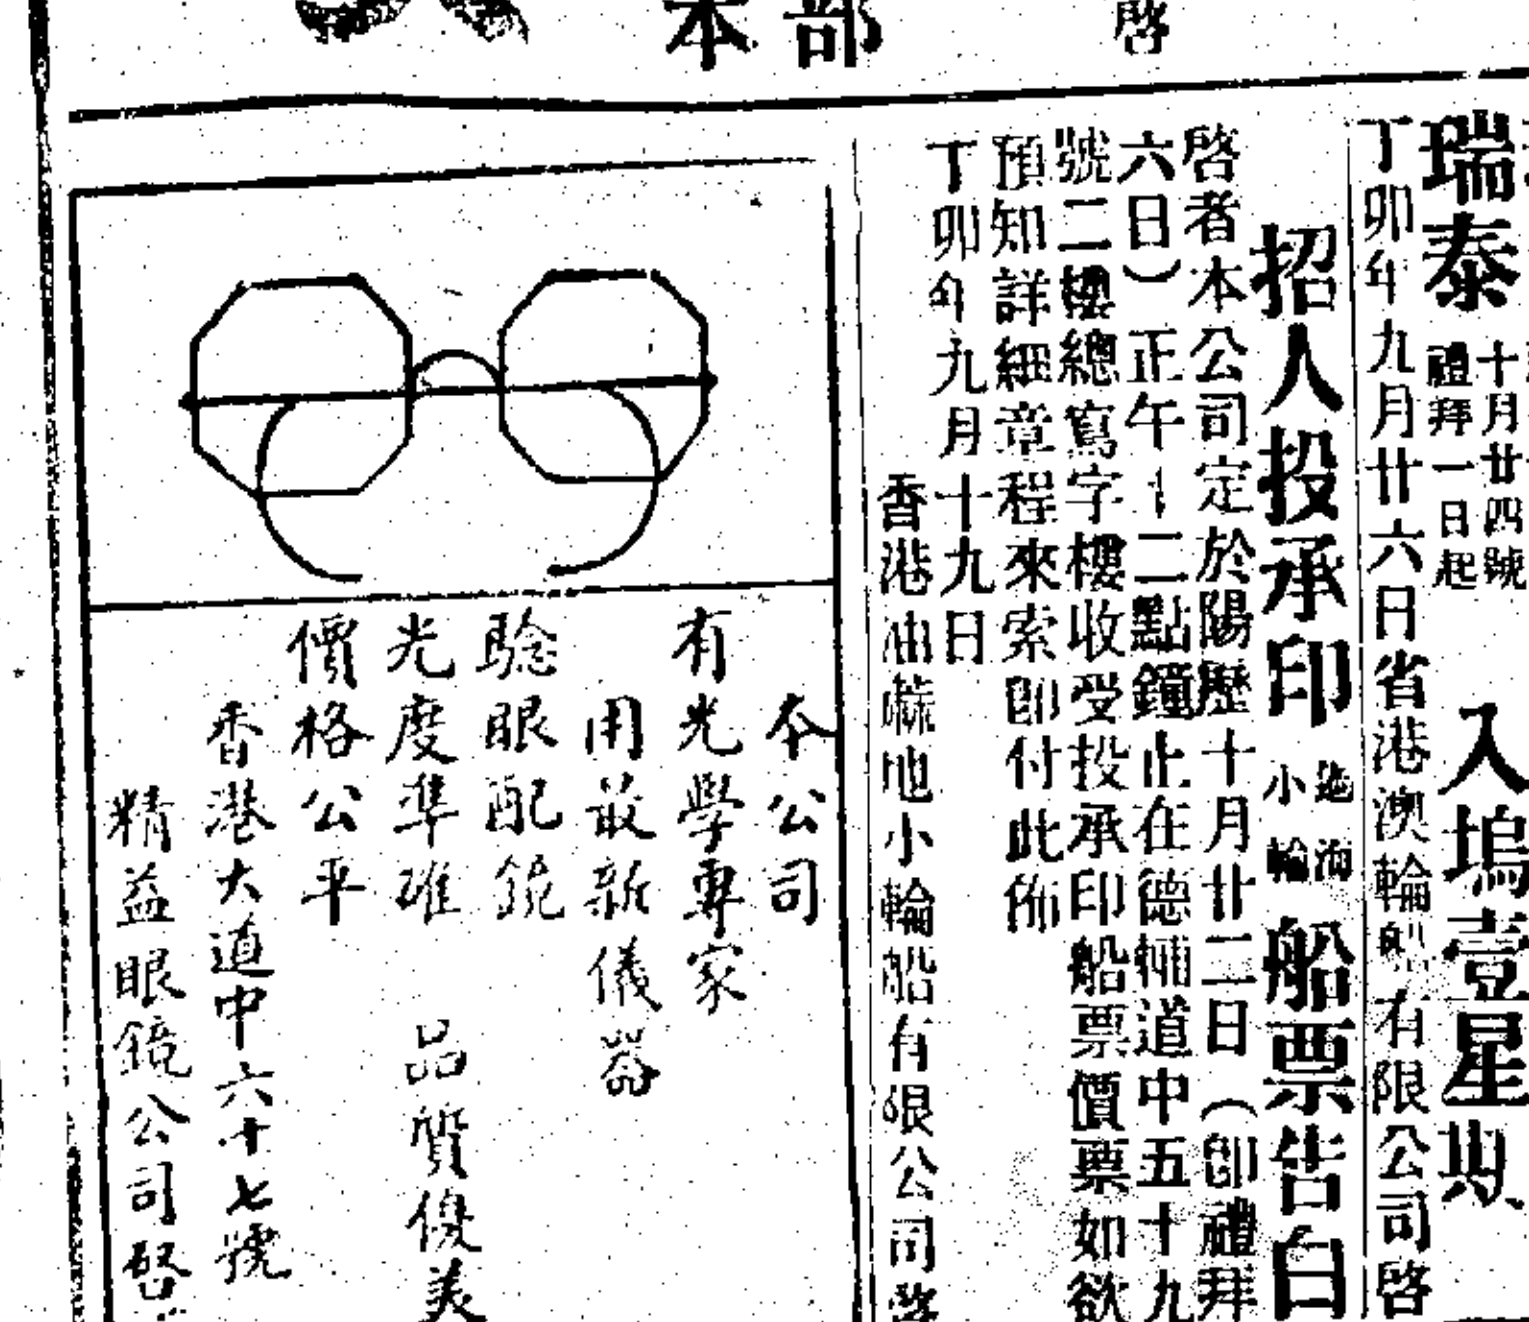 本部
啓
瑞泰
十月廿四號
禮拜一日起
入塢壹星期
丁卯年九月廿六日省港澳輪船有限公司啓
招人投承印
小輪
船票告白
啓者本公司定於陽歷十月廿二日(卽禮拜
六日)正午十二點鐘止在德輔道中五十九
號二樓總寫字樓收受投承印船票價票如欲
預知詳細章程來索卽付此佈
丁卯年九月十九日
香港油蔴地小輪船有限公司啓
本公司
有光學專家
用最新儀器
驗眼配鏡
光度準確 品質優美
價格公平
香港大道中六十七號
精益眼鏡公司啓